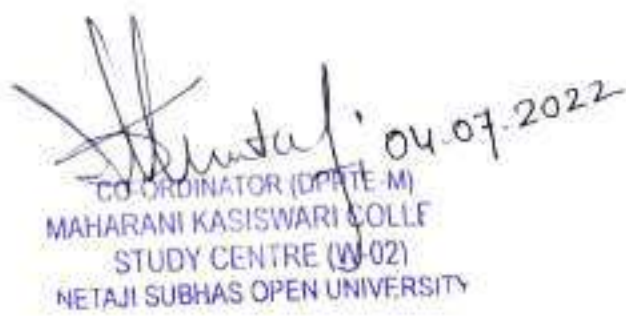 04.07.2022
CO-ORDINATOR (DPRTE-M)
MAHARANI KASISWARI COLLE
STUDY CENTRE (W-02)
NETAJI SUBHAS OPEN UNIVERSITY